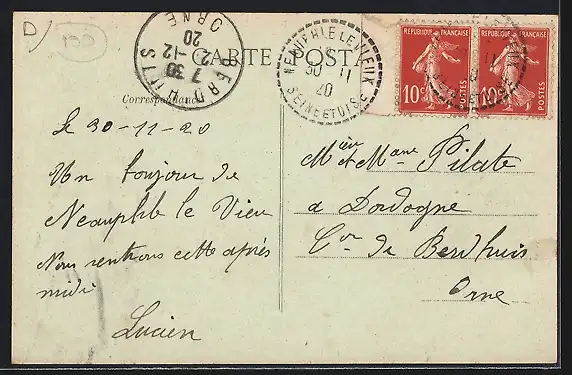 D
100
CARTE POSTALE
Correspondance
BERD'HUIS
7 30
2-12
20
ORNE
NEAUPHLE LE VIEUX
30 11
20
SEINE ET OISE
REPUBLIQUE FRANÇAISE
10c
POSTES
REPUBLIQUE FRANÇAISE
10c
POSTES
Le 30-11-20
Un bonjour de
Neauphle le Vieu
Nous rentrons cette après
midi
Lucien
Mr et Mme Pilate
a Dordogne
Cne de Berdhuis
Orne